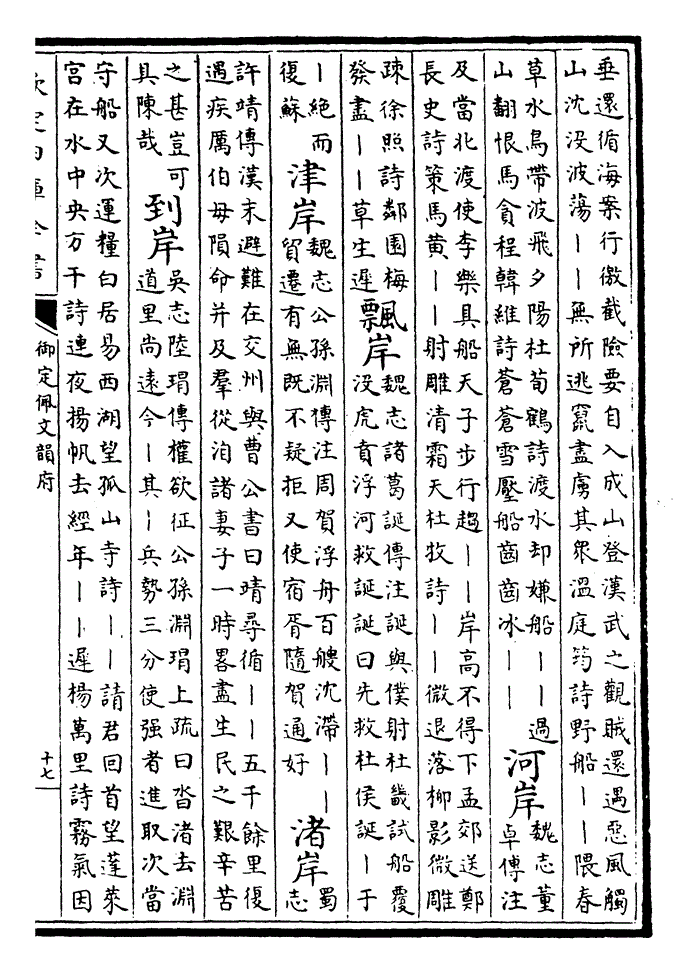 垂還循海案行徼截險要自入成山登漢武之觀賊還遇惡風觸
山沈没波蕩丨丨無所逃竄盡虜其衆溫庭筠詩野船丨丨隈春
草水鳥帶波飛夕陽杜荀鶴詩渡水却嫌船丨丨過
山翻恨馬貪程韓維詩蒼蒼雪壓船齒齒冰丨丨
河岸
魏志董
卓傳注
及當北渡使李樂具船天子步行趨丨丨岸高不得下孟郊送鄭
長史詩策馬黄丨丨射雕清霜天杜牧詩丨丨微退落柳影微雕
疎徐照詩鄰園梅
發盡丨丨草生遲
飄岸
魏志諸葛誕傳注誕與僕射杜畿試船覆
没虎賁浮河救誕誕曰先救杜侯誕丨于
丨絶而
復蘇
津岸
魏志公孫淵傳注周賀浮舟百艘沈滯丨丨
貿遷有無既不疑拒又使宿胥隨賀通好
渚岸
蜀
志
許靖傳漢末避難在交州與曹公書曰靖尋循丨丨五千餘里復
遇疾厲伯母隕命并及羣從洎諸妻子一時畧盡生民之艱辛苦
之甚豈可
具陳哉
到岸
吳志陸瑁傳權欲征公孫淵瑁上疏曰沓渚去淵
道里尚遠今丨其丨兵勢三分使强者進取次當
守船又次運糧白居易西湖望孤山寺詩丨丨請君回首望蓬萊
宫在水中央方干詩連夜揚帆去經年丨丨遲楊萬里詩霧氣因
欽定四庫全書
御定佩文韻府
十七